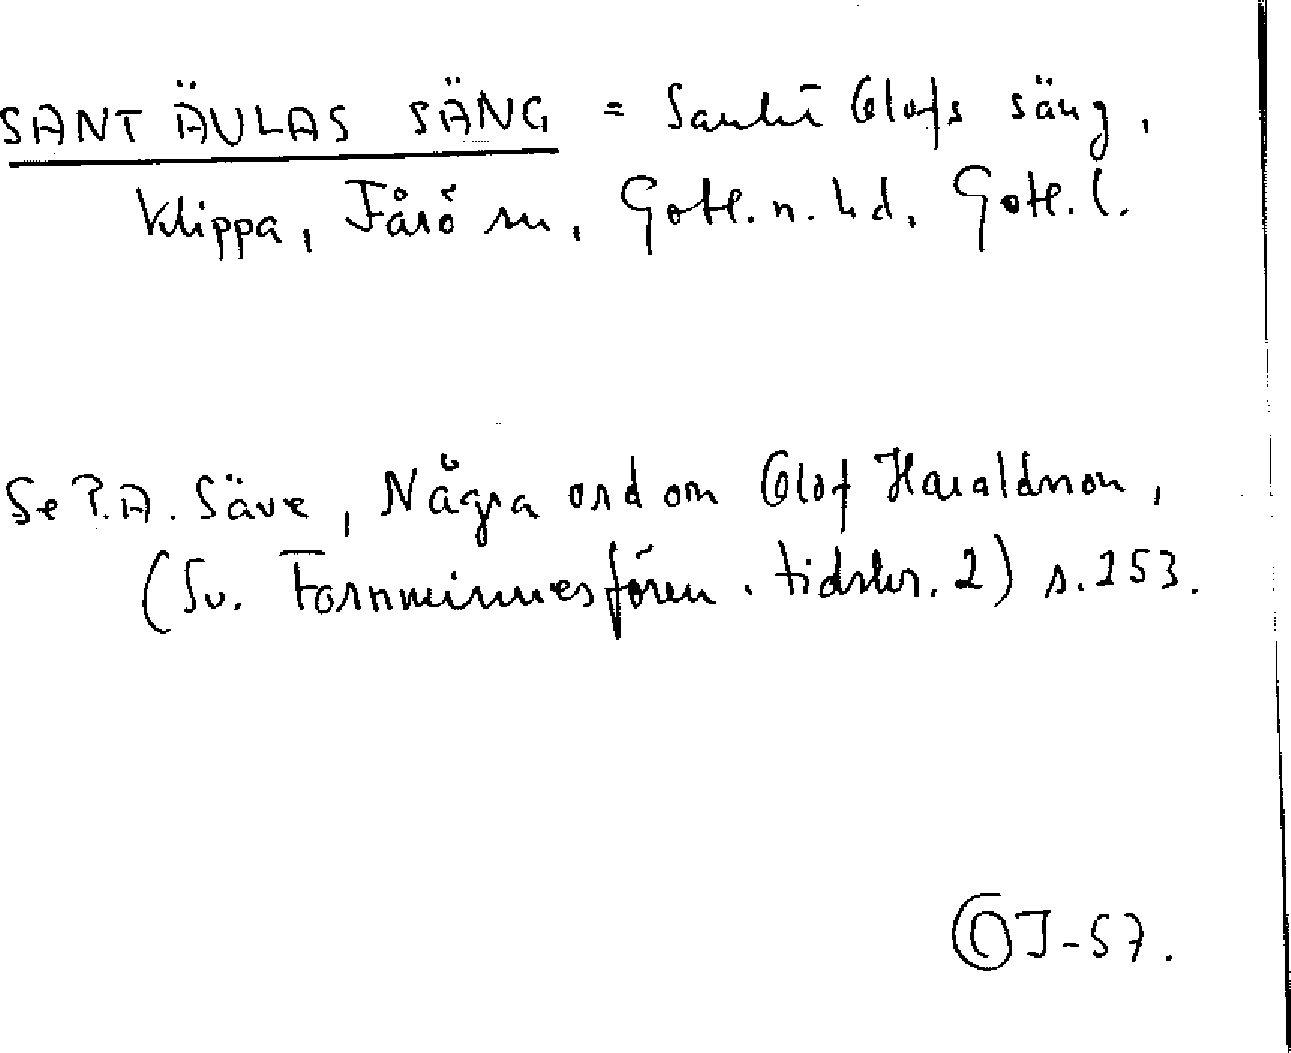 SANT ÄULAS SÄNG = Sankt Olofs säng,
Klippa, Fårö sn, Gotl. n. hd, Gotl. l.
Se P.A. Säve, Några ord om Olof Haraldsson,
(Sv. Fornminnesfören. tidskr. 2) s. 253.
OJ-57.